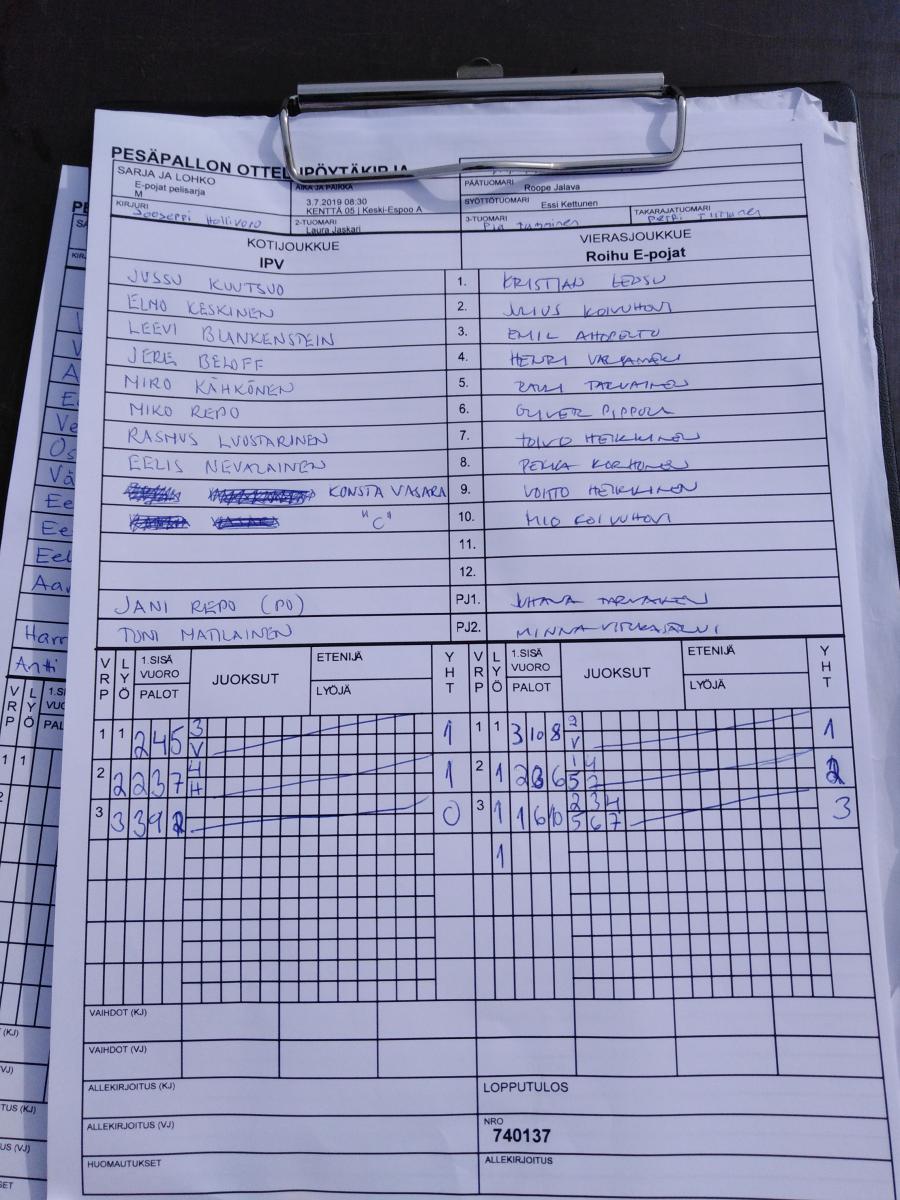 PESÄPALLON OTTELUPÖYTÄKIRJA
SARJA JA LOHKO
E-pojat pelisarja
M
KIRJURI
AIKA JA PAIKKA
3.7.2019 08:30
KENTTÄ 05 | Keski-Espoo A
2-TUOMARI
Laura Jaskari
PÄÄTUOMARI
Roope Jalava
SYÖTTÖTUOMARI
Essi Kettunen
3-TUOMARI
TAKARAJATUOMARI
KOTIJOUKKUE
IPV
VIERASJOUKKUE
Roihu E-pojat
JUSSU KUUTSUO 1. KRISTIAN LEDSU
ELMO KESKINEN 2. JULIUS KOIVUHOVI
LEEVI BLANKENSTEIN 3. EMIL AHOPELTO
JERE BELOFF 4. HENRI
MIRO KÄHKÖNEN 5. TARVAINEN
MIKO REPO 6. OLIVER PIPPOLA
RASMUS LUOSTARINEN 7. TOIVO HEIKKINEN
EELIS NEVALAINEN 8. PEKKA KORHONEN
KONSTA VASARA 9. VOITTO HEIKKINEN
"C" 10. MIO KOIVUHOVI
11.
12.
JANI REPO (PO) PJ1. JUHANA TARVAINEN
TONI MATILAINEN PJ2. MINNA
VRP LYÖ 1.SISÄ VUORO PALOT JUOKSUT ETENIJÄ LYÖJÄ YHT VRP LYÖ 1.SISÄ VUORO PALOT JUOKSUT ETENIJÄ LYÖJÄ YHT
1 1 2 4 5 3 V 1 1 1 3 10 8 2 V 1
2 2 2 3 7 4 H 1 2 1 2 6 1 4 5 7 2
3 3 3 9 0 3 1 1 6 10 2 3 4 5 6 7 3
1
VAIHDOT (KJ)
VAIHDOT (VJ)
ALLEKIRJOITUS (KJ) LOPPUTULOS
ALLEKIRJOITUS (VJ) NRO
740137
HUOMAUTUKSET ALLEKIRJOITUS